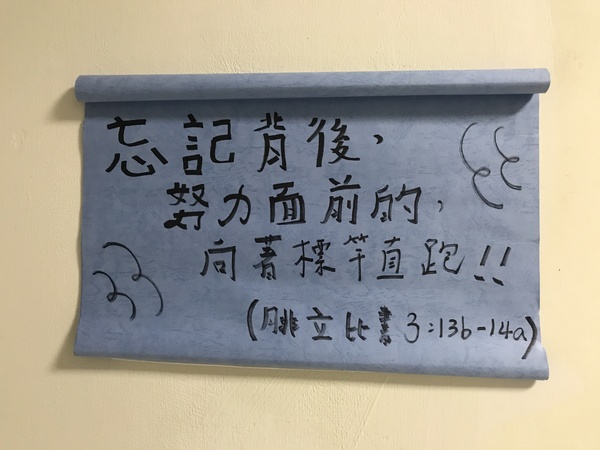 忘記背後,
努力面前的,
向著標竿直跑!!
(腓立比書3:13b-14a)